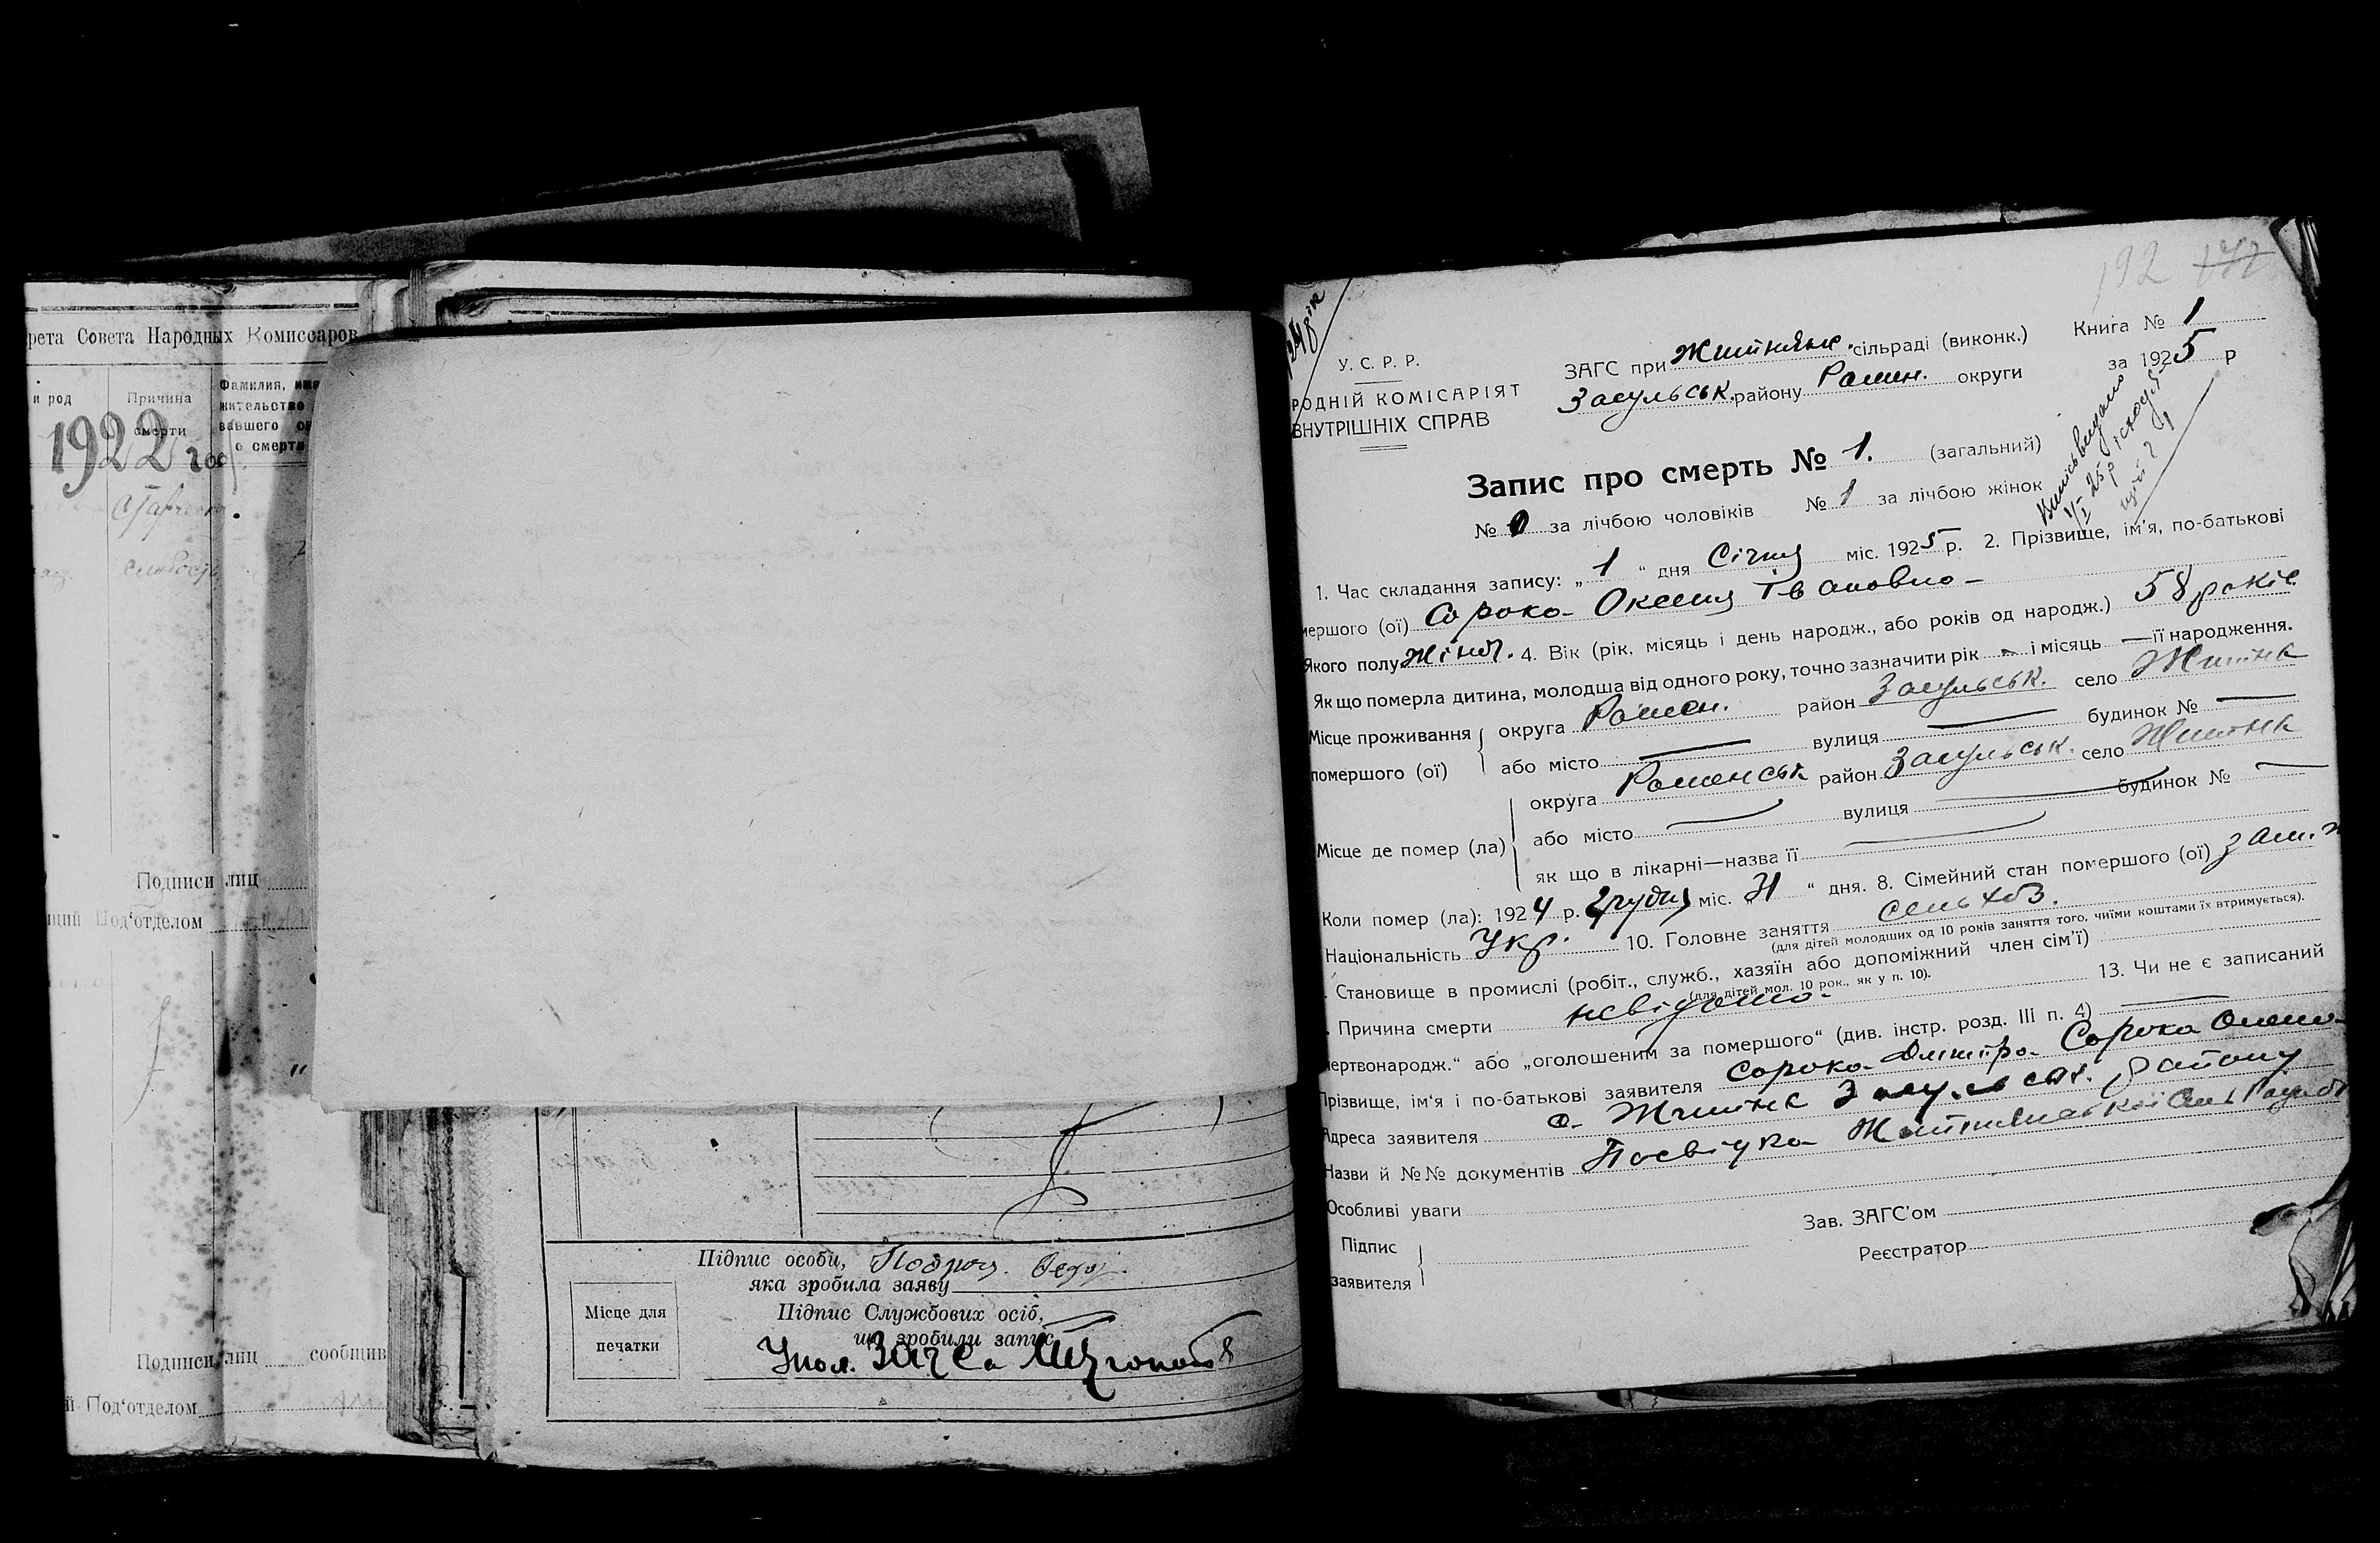 рета Совета Народных Комиссаров
и род
Причина
смерти
Фамилия, имя
жительство
вавшего
о смерти
1922
Подписи лиц
щий Под'отделом
Подписи лиц сообщив
й Под'отделом
Підпис особи,
яка зробила заяву
Підпис Службових осіб,
що зробили запис
Місце для
печатки
192
У. С. Р. Р.
РОДНІЙ КОМІСАРІЯТ
ВНУТРІШНІХ СПРАВ
ЗАГС при Житнянс. сільраді (виконк.)
Засульськ. району Ромен. округи
Книга № 1
за 1925 р
Запис про смерть № 1. (загальний)
№ 0 за лічбою чоловіків № 1 за лічбою жінок
1. Час складання запису: „ 1 “ дня Січня міс. 1925 р. 2. Прізвище, ім'я, по-батькові
мершого (ої) Сорока Оксеня Івановна
Якого полу Жіноч. 4. Вік (рік, місяць і день народж., або років од народж.) 58 років
Як що померла дитина, молодша від одного року, точно зазначити рік — і місяць — її народження.
Місце проживання
помершого (ої)
округа Ромен. район Засульськ. село Житнє
або місто — вулиця — будинок № —
Місце де помер (ла)
округа Роменськ район Засульськ. село Житнє
або місто — вулиця — будинок № —
як що в лікарні—назва її —
Коли помер (ла): 1924 р. Грудня міс. 31 “ дня. 8. Сімейний стан помершого (ої) зам.
Національність Укр. 10. Головне заняття сельхоз.
(для дітей молодших од 10 років заняття того, чиїми коштами їх втримується).
. Становище в промислі (робіт., служб., хазяїн або допоміжний член сім'ї)
(для дітей мол. 10 рок., як у п. 10).
. Причина смерти невідомо. 13. Чи не є записаний
мертвонародж.“ або „оголошеним за помершого“ (див. інстр. розд. III п. 4) —
Прізвище, ім'я і по-батькові заявителя Сорока Дмитро Сорока
Адреса заявителя с. Житнє Засульськ. району
Назви й №№ документів Посвідка Житнянської Сіль Ради
Особливі уваги
Підпис
заявителя
Зав. ЗАГС'ом
Реєстратор